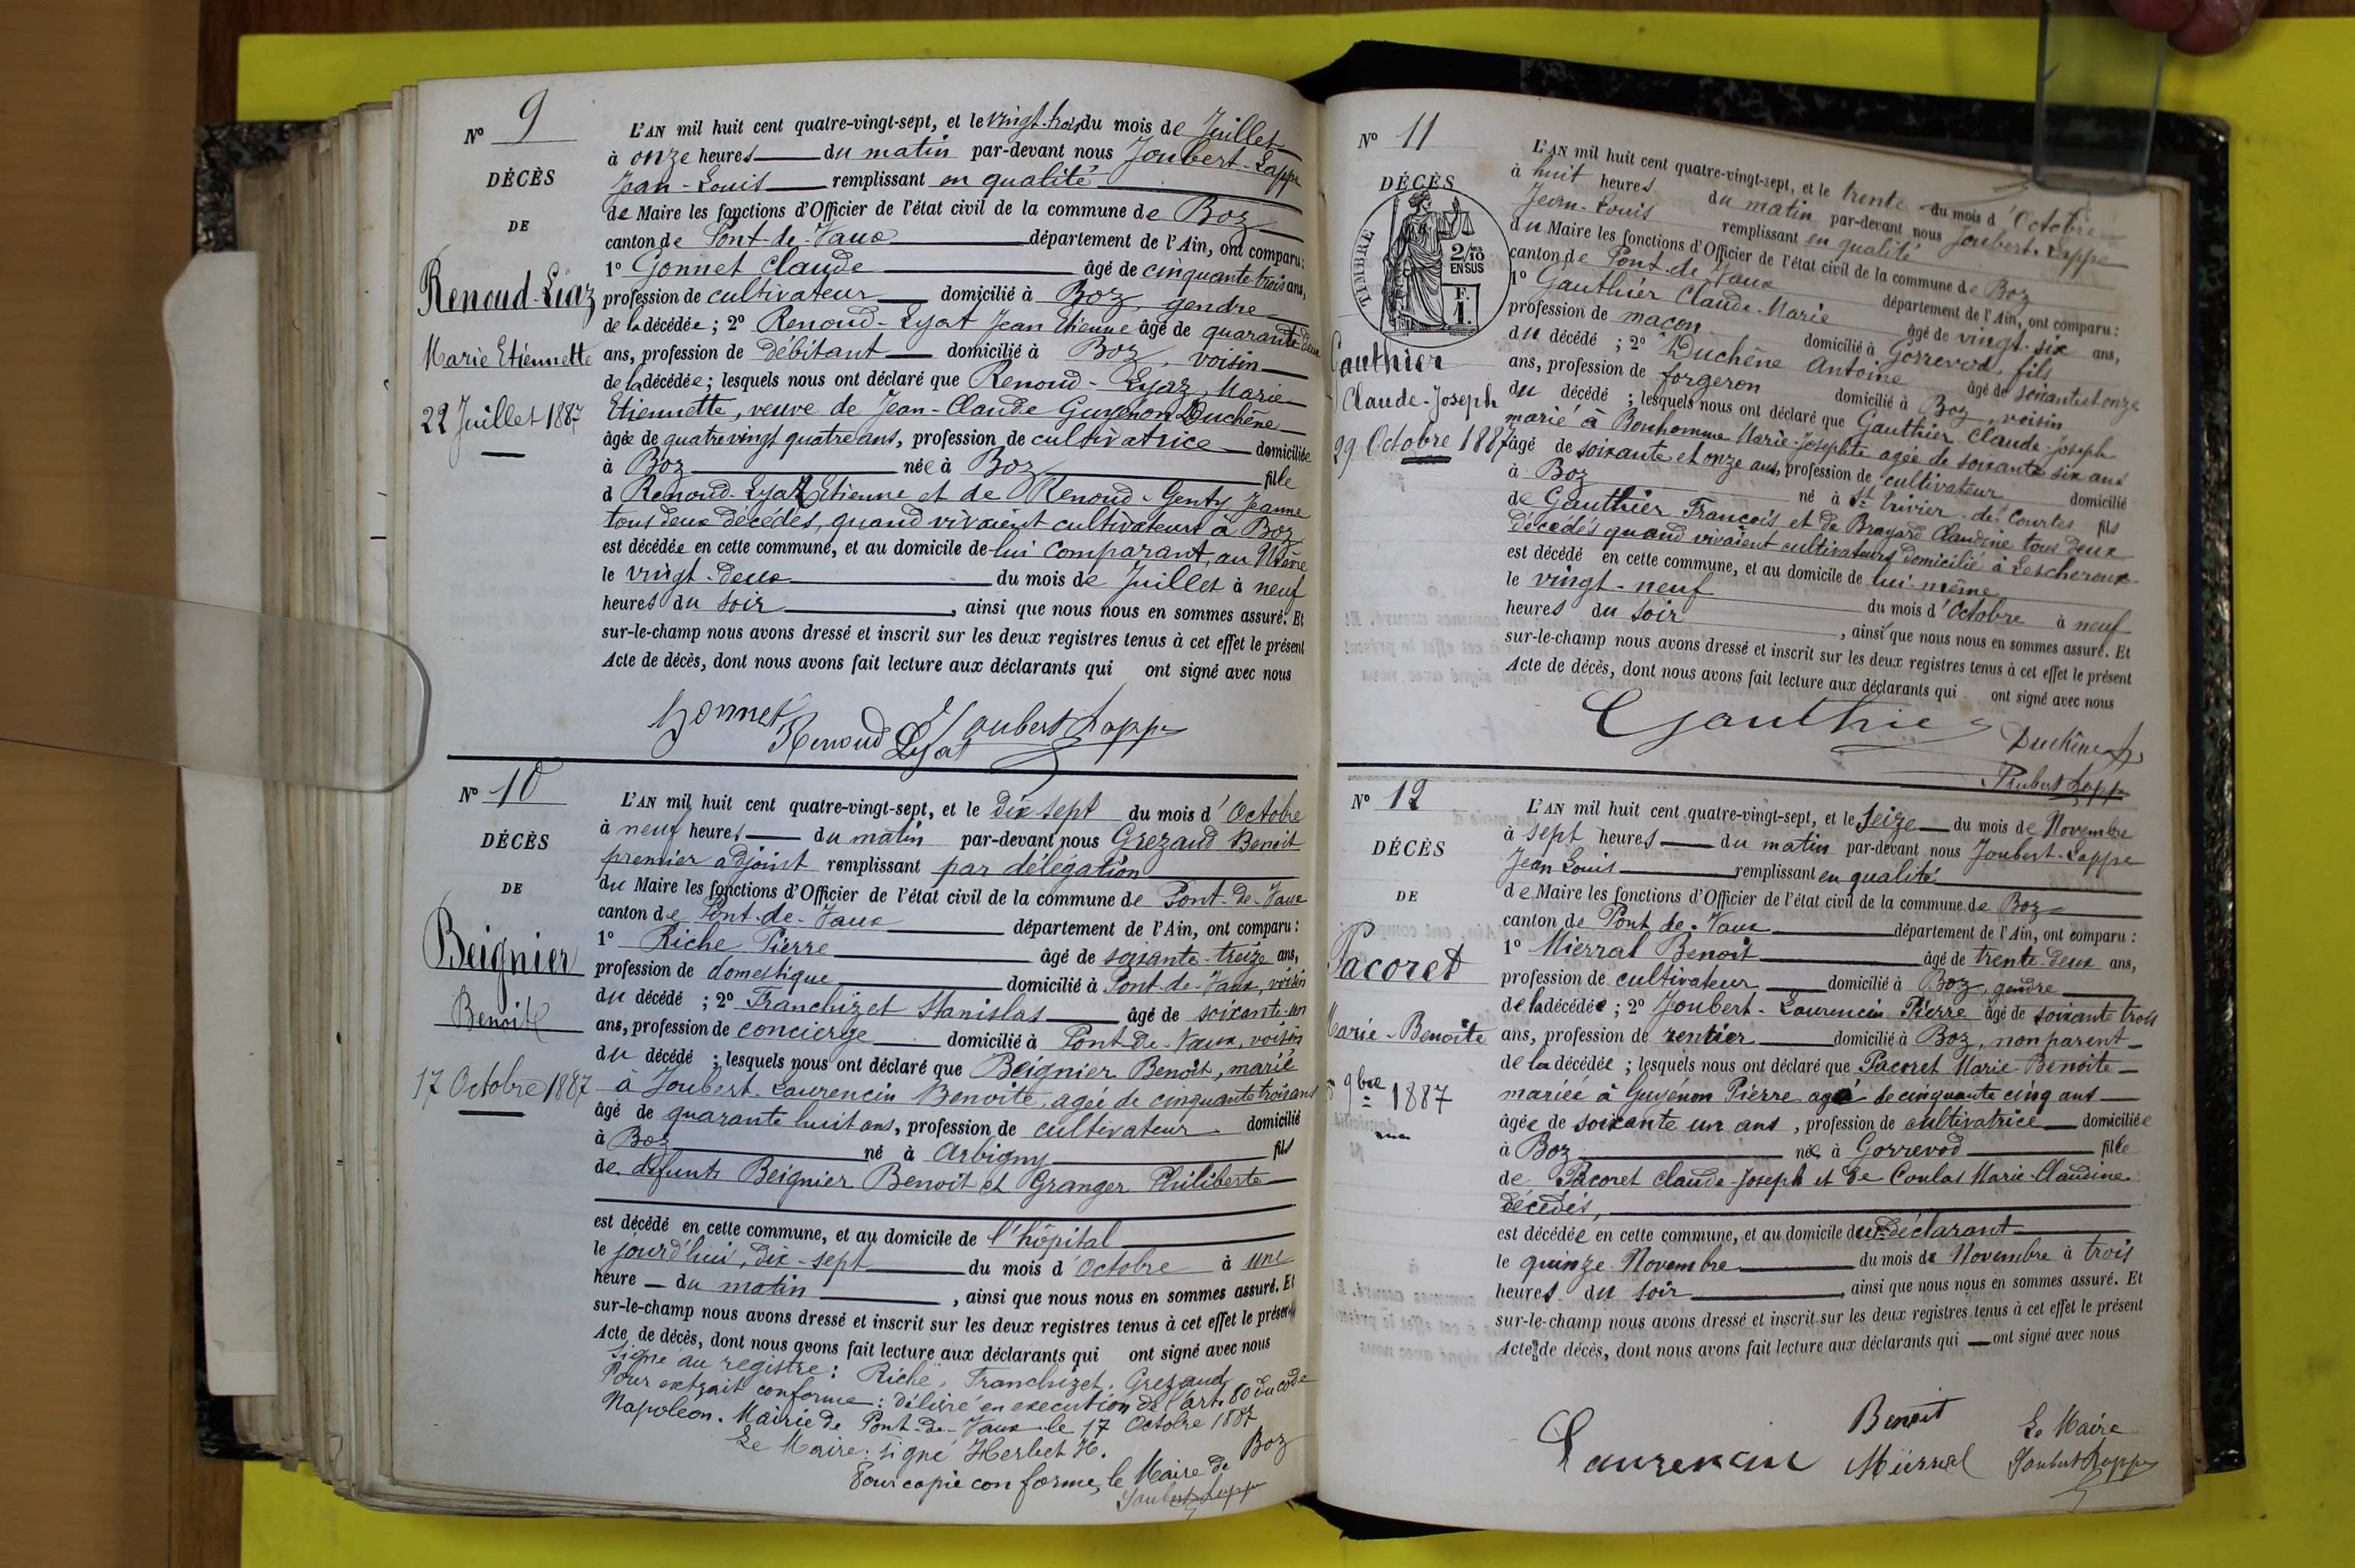 N° 9
DÉCÈS
DE
Renoud-Liaz
Marie Etiennette
22 Juillet 1887
L'AN mil huit cent quatre-vingt-sept, et le vingt-trois du mois de Juillet
à onze heures du matin par-devant nous Joubert-Lappe
Jean-Louis remplissant en qualité
de Maire les fonctions d'Officier de l'état civil de la commune de Boz
canton de Pont-de-Vaux département de l'Ain, ont comparu:
1° Gonnet Claude âgé de cinquante trois ans,
profession de cultivateur domicilié à Boz, gendre
de la décédée; 2° Renoud-Lyat Jean Etienne âgé de quarante deux
ans, profession de débitant domicilié à Boz, voisin
de la décédée; lesquels nous ont déclaré que Renoud-Lyaz, Marie
Etiennette, veuve de Jean-Claude Guyénon Duchêne
âgée de quatre vingt quatre ans, profession de cultivatrice domiciliée
à Boz née à Boz fille
d Renoud-Lyaz Etienne et de Renoud-Genty Jeanne
tous deux décédés, quand vivaient cultivateurs à Boz
est décédée en cette commune, et au domicile de lui comparant, au
le vingt-deux du mois de Juillet à neuf
heures du soir, ainsi que nous nous en sommes assuré. Et
sur-le-champ nous avons dressé et inscrit sur les deux registres tenus à cet effet le présent
Acte de décès, dont nous avons fait lecture aux déclarants qui ont signé avec nous
Gonnet Renoud Lyat Joubert Lappe
N° 10
DÉCÈS
DE
Beignier
Benoit
17 Octobre 1887
L'AN mil huit cent quatre-vingt-sept, et le dix sept du mois d'Octobre
à neuf heures du matin par-devant nous Grezaud Benoit
premier adjoint remplissant par délégation
du Maire les fonctions d'Officier de l'état civil de la commune de Pont-de-Vaux
canton de Pont-de-Vaux département de l'Ain, ont comparu:
1° Riche Pierre âgé de soixante-treize ans,
profession de domestique domicilié à Pont-de-Vaux, voisin
du décédé; 2° Franchizet Stanislas âgé de soixante-un
ans, profession de concierge domicilié à Pont-de-Vaux, voisin
du décédé; lesquels nous ont déclaré que Beignier Benoit, marié
à Joubert-Laurencin Benoite, agée de cinquante trois ans
âgé de quarante huit ans, profession de cultivateur domicilié
à Boz né à Arbigny fils
de défunts Beignier Benoit et Granger Philiberte
est décédé en cette commune, et au domicile de l'hôpital
le jourd'hui, dix-sept du mois d Octobre à une
heure du matin, ainsi que nous nous en sommes assuré. Et
sur-le-champ nous avons dressé et inscrit sur les deux registres tenus à cet effet le présent
Acte de décès, dont nous avons fait lecture aux déclarants qui ont signé avec nous
Signé au registre: Riche, Franchizet, Grezaud
Pour extrait conforme: délivré en execution de l'art. 80 du code
Napoléon. Mairie de Pont-de-Vaux le 17 Octobre 1887
Le Maire: signé Herbet H.
Pour copie conforme, le Maire de Boz
Joubert Lappe
N° 11
DÉCÈS
TIMBRE
2/10
EN SUS
F.
1.
Gauthier
Claude-Joseph
29 Octobre 1887
L'AN mil huit cent quatre-vingt-sept, et le trente du mois d'Octobre
à huit heures du matin par-devant nous Joubert-Lappe
Jean-Louis remplissant en qualité
du Maire les fonctions d'Officier de l'état civil de la commune de Boz
canton de Pont-de-Vaux département de l'Ain, ont comparu:
1° Gauthier Claude-Marie âgé de vingt-six ans,
profession de maçon domicilié à Gorrevod, fils
du décédé; 2° Duchêne Antoine âgé de soixante et onze
ans, profession de forgeron domicilié à Boz, voisin
du décédé; lesquels nous ont déclaré que Gauthier Claude-Joseph
marié à Bonhomme Marie-Josephte agée de soixante six ans
âgé de soixante et onze ans, profession de cultivateur domicilié
à Boz né à St Trivier-de-Courtes fils
de Gauthier François et de Brayard Claudine tous deux
décédés quand vivaient cultivateurs domicilié à Lescheroux
est décédé en cette commune, et au domicile de lui-même
le vingt-neuf du mois d'Octobre à neuf
heures du soir, ainsi que nous nous en sommes assuré. Et
sur-le-champ nous avons dressé et inscrit sur les deux registres tenus à cet effet le présent
Acte de décès, dont nous avons fait lecture aux déclarants qui ont signé avec nous
Gauthier
Duchêne
Joubert Lappe
N° 12
DÉCÈS
DE
Pacoret
Marie-Benoite
9bre 1887
L'AN mil huit cent quatre-vingt-sept, et le seize du mois de Novembre
à sept heures du matin par-devant nous Joubert-Lappe
Jean Louis remplissant en qualité
de Maire les fonctions d'Officier de l'état civil de la commune de Boz
canton de Pont de-Vaux département de l'Ain, ont comparu:
1° Mierral Benoit âgé de trente-deux ans,
profession de cultivateur domicilié à Boz, gendre
de la décédée; 2° Joubert-Laurencin Pierre âgé de soixante trois
ans, profession de rentier domicilié à Boz, non parent
de la décédée; lesquels nous ont déclaré que Pacoret Marie-Benoite
mariée à Guyénon Pierre agé de cinquante cinq ans
âgée de soixante un ans, profession de cultivatrice domiciliée
à Boz née à Gorrevod fille
de Pacoret Claude-Joseph et de Coulas Marie-Claudine
décédés,
est décédée en cette commune, et au domicile du déclarant
le quinze Novembre du mois de Novembre à trois
heures du soir, ainsi que nous nous en sommes assuré. Et
sur-le-champ nous avons dressé et inscrit sur les deux registres tenus à cet effet le présent
Acte de décès, dont nous avons fait lecture aux déclarants qui ont signé avec nous
Laurencin
Benoit
Mierral
Le Maire
Joubert Lappe